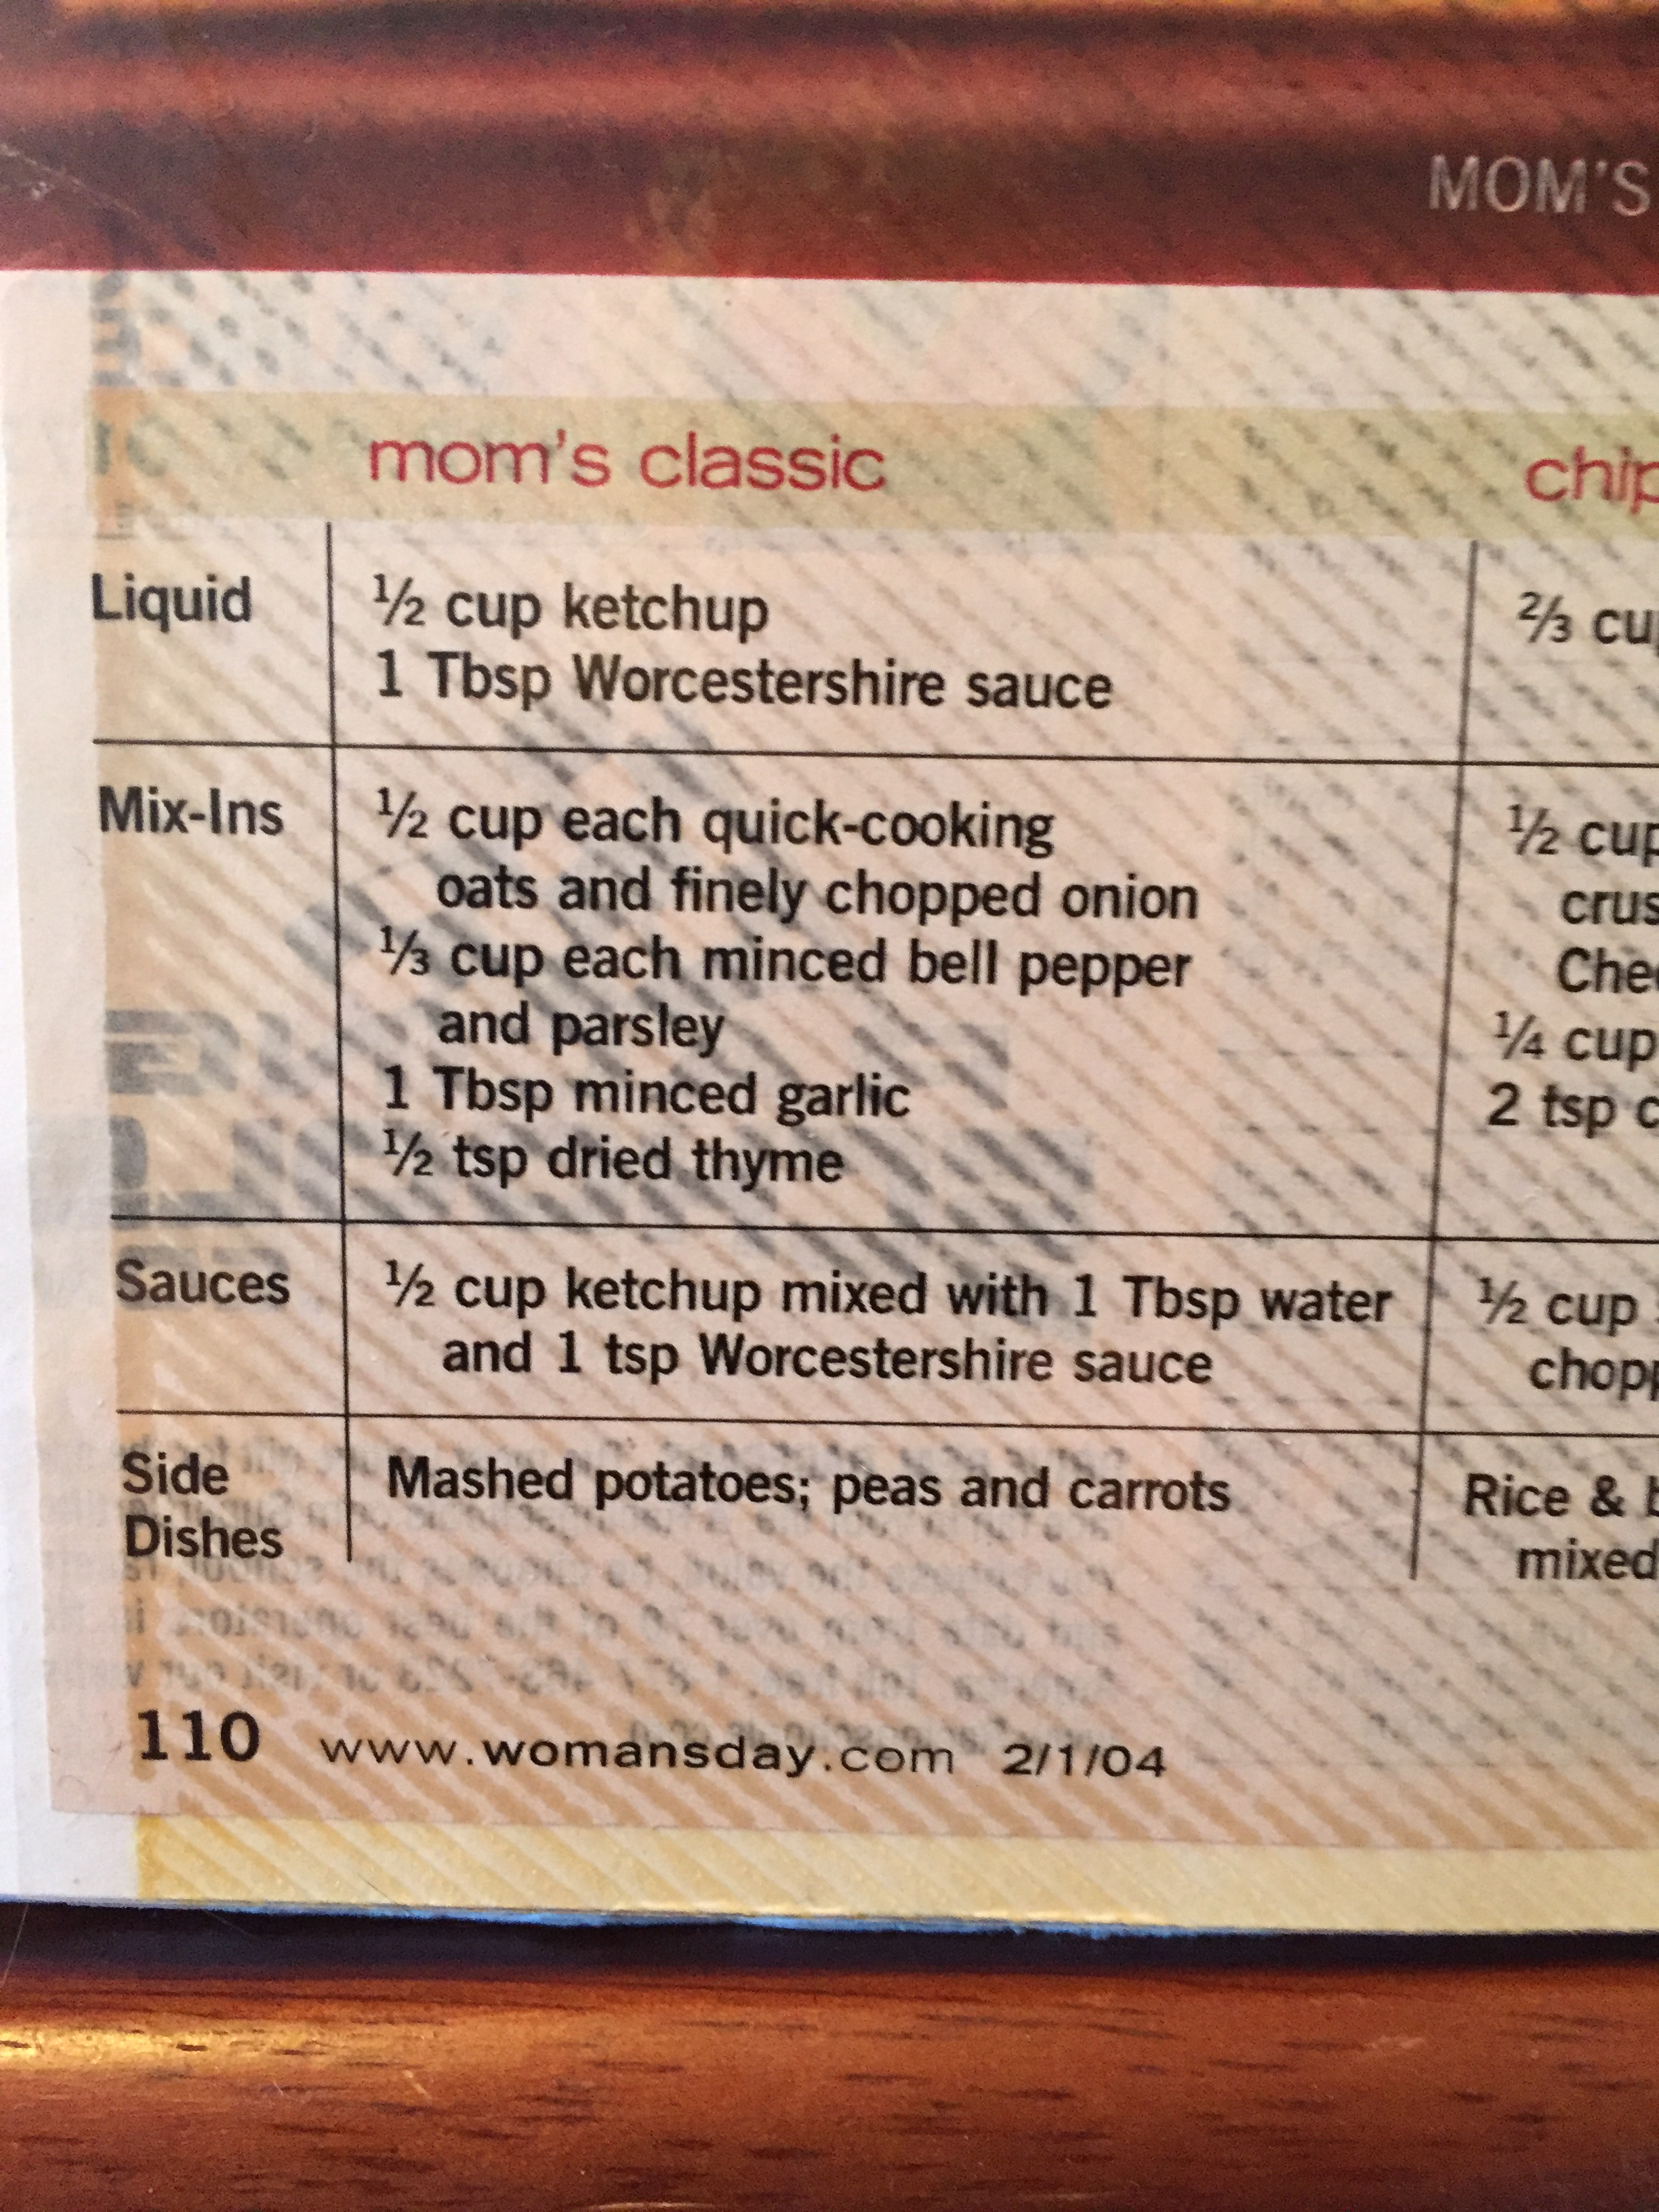 MOM'S
mom's classic
Liquid
½ cup ketchup
1 Tbsp Worcestershire sauce
⅔
Mix-Ins
½ cup each quick-cooking
oats and finely chopped onion
⅓ cup each minced bell pepper
and parsley
1 Tbsp minced garlic
½ tsp dried thyme
½ cup
¼ cup
2 tsp
Sauces
½ cup ketchup mixed with 1 Tbsp water
and 1 tsp Worcestershire sauce
½ cup
Side
Dishes
Mashed potatoes; peas and carrots
Rice &
mixed
110 www.womansday.com 2/1/04